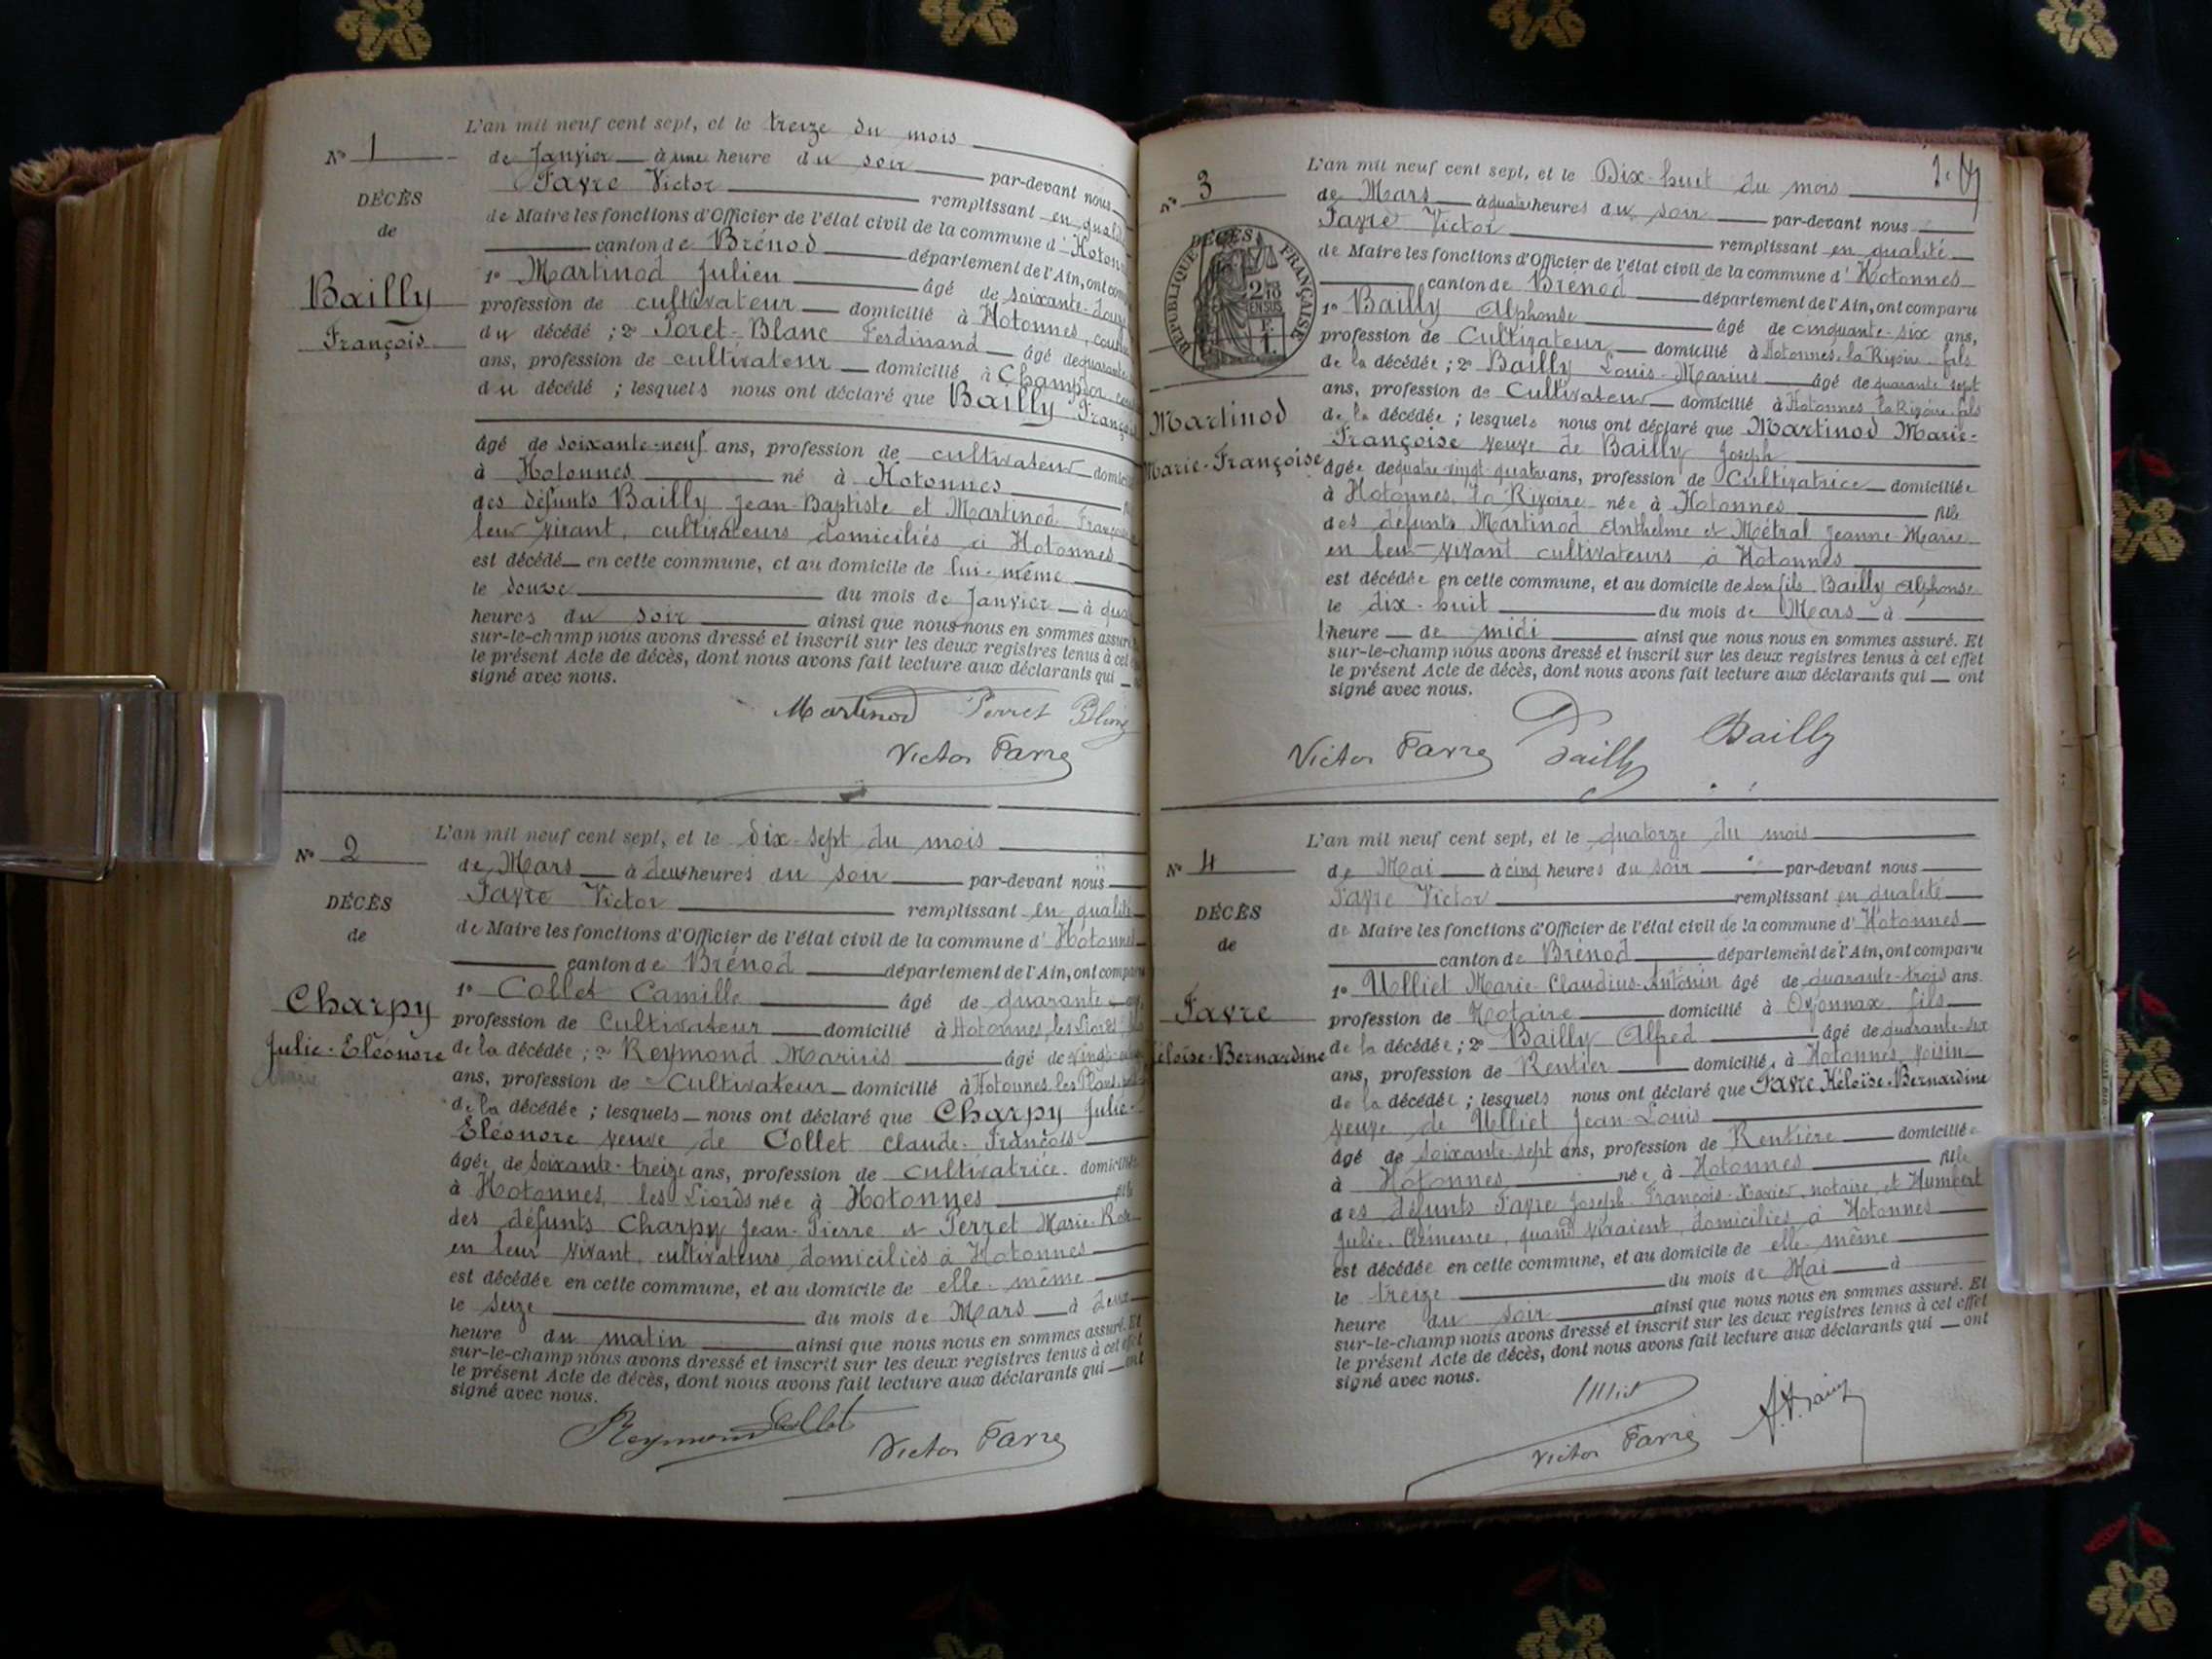 N° 1
DÉCÈS
de
Bailly
François
L'an mil neuf cent sept, et le treize du mois
de Janvier à une heure du soir par-devant nous
Favre Victor remplissant en qualité
de Maire les fonctions d'Officier de l'état civil de la commune d'Hotonnes
canton de Brénod département de l'Ain, ont comparu
1° Martinod Julien âgé de soixante-douze
profession de cultivateur domicilié à Hotonnes, cousin
du décédé ; 2° Poret-Blanc Ferdinand âgé de quarante
ans, profession de cultivateur domicilié à Champdor
du décédé ; lesquels nous ont déclaré que Bailly François
âgé de soixante-neuf ans, profession de cultivateur domicilié
à Hotonnes né à Hotonnes
des défunts Bailly Jean-Baptiste et Martinod Françoise
leur vivant, cultivateurs domiciliés à Hotonnes
est décédé en cette commune, et au domicile de lui-même
le douze du mois de Janvier à
heures du soir ainsi que nous nous en sommes assuré
sur-le-champ nous avons dressé et inscrit sur les deux registres tenus à cet
le présent Acte de décès, dont nous avons fait lecture aux déclarants qui
signé avec nous.
Martinod Perret Blanc
Victor Favre
N° 2
DÉCÈS
de
Charpy
Julie-Eléonore
L'an mil neuf cent sept, et le dix-sept du mois
de Mars à deux heures du soir par-devant nous
Favre Victor remplissant en qualité
de Maire les fonctions d'Officier de l'état civil de la commune d'Hotonnes
canton de Brénod département de l'Ain, ont comparu
1° Collet Camille âgé de quarante
profession de Cultivateur domicilié à Hotonnes, les Liords
de la décédée ; 2° Reymond Marius âgé de vingt
ans, profession de Cultivateur domicilié à Hotonnes, les Plans
de la décédée ; lesquels nous ont déclaré que Charpy Julie-
Eléonore veuve de Collet Claude-François
âgée de soixante-treize ans, profession de cultivatrice domiciliée
à Hotonnes, les Liords née à Hotonnes fille
des défunts Charpy Jean-Pierre et Perret Marie-Rose
en leur vivant, cultivateurs domiciliés à Hotonnes
est décédée en cette commune, et au domicile de elle-même
le seize du mois de Mars à
heure du matin ainsi que nous nous en sommes assuré. Et
sur-le-champ nous avons dressé et inscrit sur les deux registres tenus à cet effet
le présent Acte de décès, dont nous avons fait lecture aux déclarants qui ont
signé avec nous.
Reymond Collet
Victor Favre
N° 3
RÉPUBLIQUE FRANÇAISE
DÉCÈS
Martinod
Marie-Françoise
L'an mil neuf cent sept, et le Dix-huit du mois
de Mars à quatre heures du soir par-devant nous
Favre Victor remplissant en qualité
de Maire les fonctions d'Officier de l'état civil de la commune d'Hotonnes
canton de Brénod département de l'Ain, ont comparu
1° Bailly Alphonse âgé de cinquante-six ans,
profession de Cultivateur domicilié à Hotonnes, la Rivoire fils
de la décédée ; 2° Bailly Louis-Marius âgé de quarante sept
ans, profession de Cultivateur domicilié à Hotonnes la Rivoire, fils
de la décédée ; lesquels nous ont déclaré que Martinod Marie-
Françoise veuve de Bailly Joseph
âgée de quatre-vingt-quatre ans, profession de Cultivatrice domiciliée
à Hotonnes, la Rivoire née à Hotonnes fille
des défunts Martinod Anthelme et Métral Jeanne-Marie
en leur vivant cultivateurs à Hotonnes
est décédée en cette commune, et au domicile de son fils Bailly Alphonse
le dix-huit du mois de Mars à
1 heure de midi ainsi que nous nous en sommes assuré. Et
sur-le-champ nous avons dressé et inscrit sur les deux registres tenus à cet effet
le présent Acte de décès, dont nous avons fait lecture aux déclarants qui ont
signé avec nous.
Victor Favre Bailly Bailly
N° 4
DÉCÈS
de
Favre
Héloïse-Bernardine
L'an mil neuf cent sept, et le quatorze du mois
de Mai à cinq heures du soir par-devant nous
Favre Victor remplissant en qualité
de Maire les fonctions d'Officier de l'état civil de la commune d'Hotonnes
canton de Brénod département de l'Ain, ont comparu
1° Ulliet Marie-Claudius-Antonin âgé de quarante-trois ans.
profession de Notaire domicilié à Oyonnax fils
de la décédée ; 2° Bailly Alfred âgé de quarante-six
ans, profession de Rentier domicilié à Hotonnes, voisin
de la décédée ; lesquels nous ont déclaré que Favre Héloïse-Bernardine
veuve de Ulliet Jean-Louis
âgé de soixante-sept ans, profession de Rentière domiciliée
à Hotonnes née à Hotonnes fille
des défunts Favre Joseph-François-Xavier, notaire, et Humbert
Julie-Clémence, quand vivaient, domiciliés à Hotonnes
est décédée en cette commune, et au domicile de elle-même
le treize du mois de Mai à
heure du soir ainsi que nous nous en sommes assuré. Et
sur-le-champ nous avons dressé et inscrit sur les deux registres tenus à cet effet
le présent Acte de décès, dont nous avons fait lecture aux déclarants qui ont
signé avec nous.
Ulliet
Victor Favre